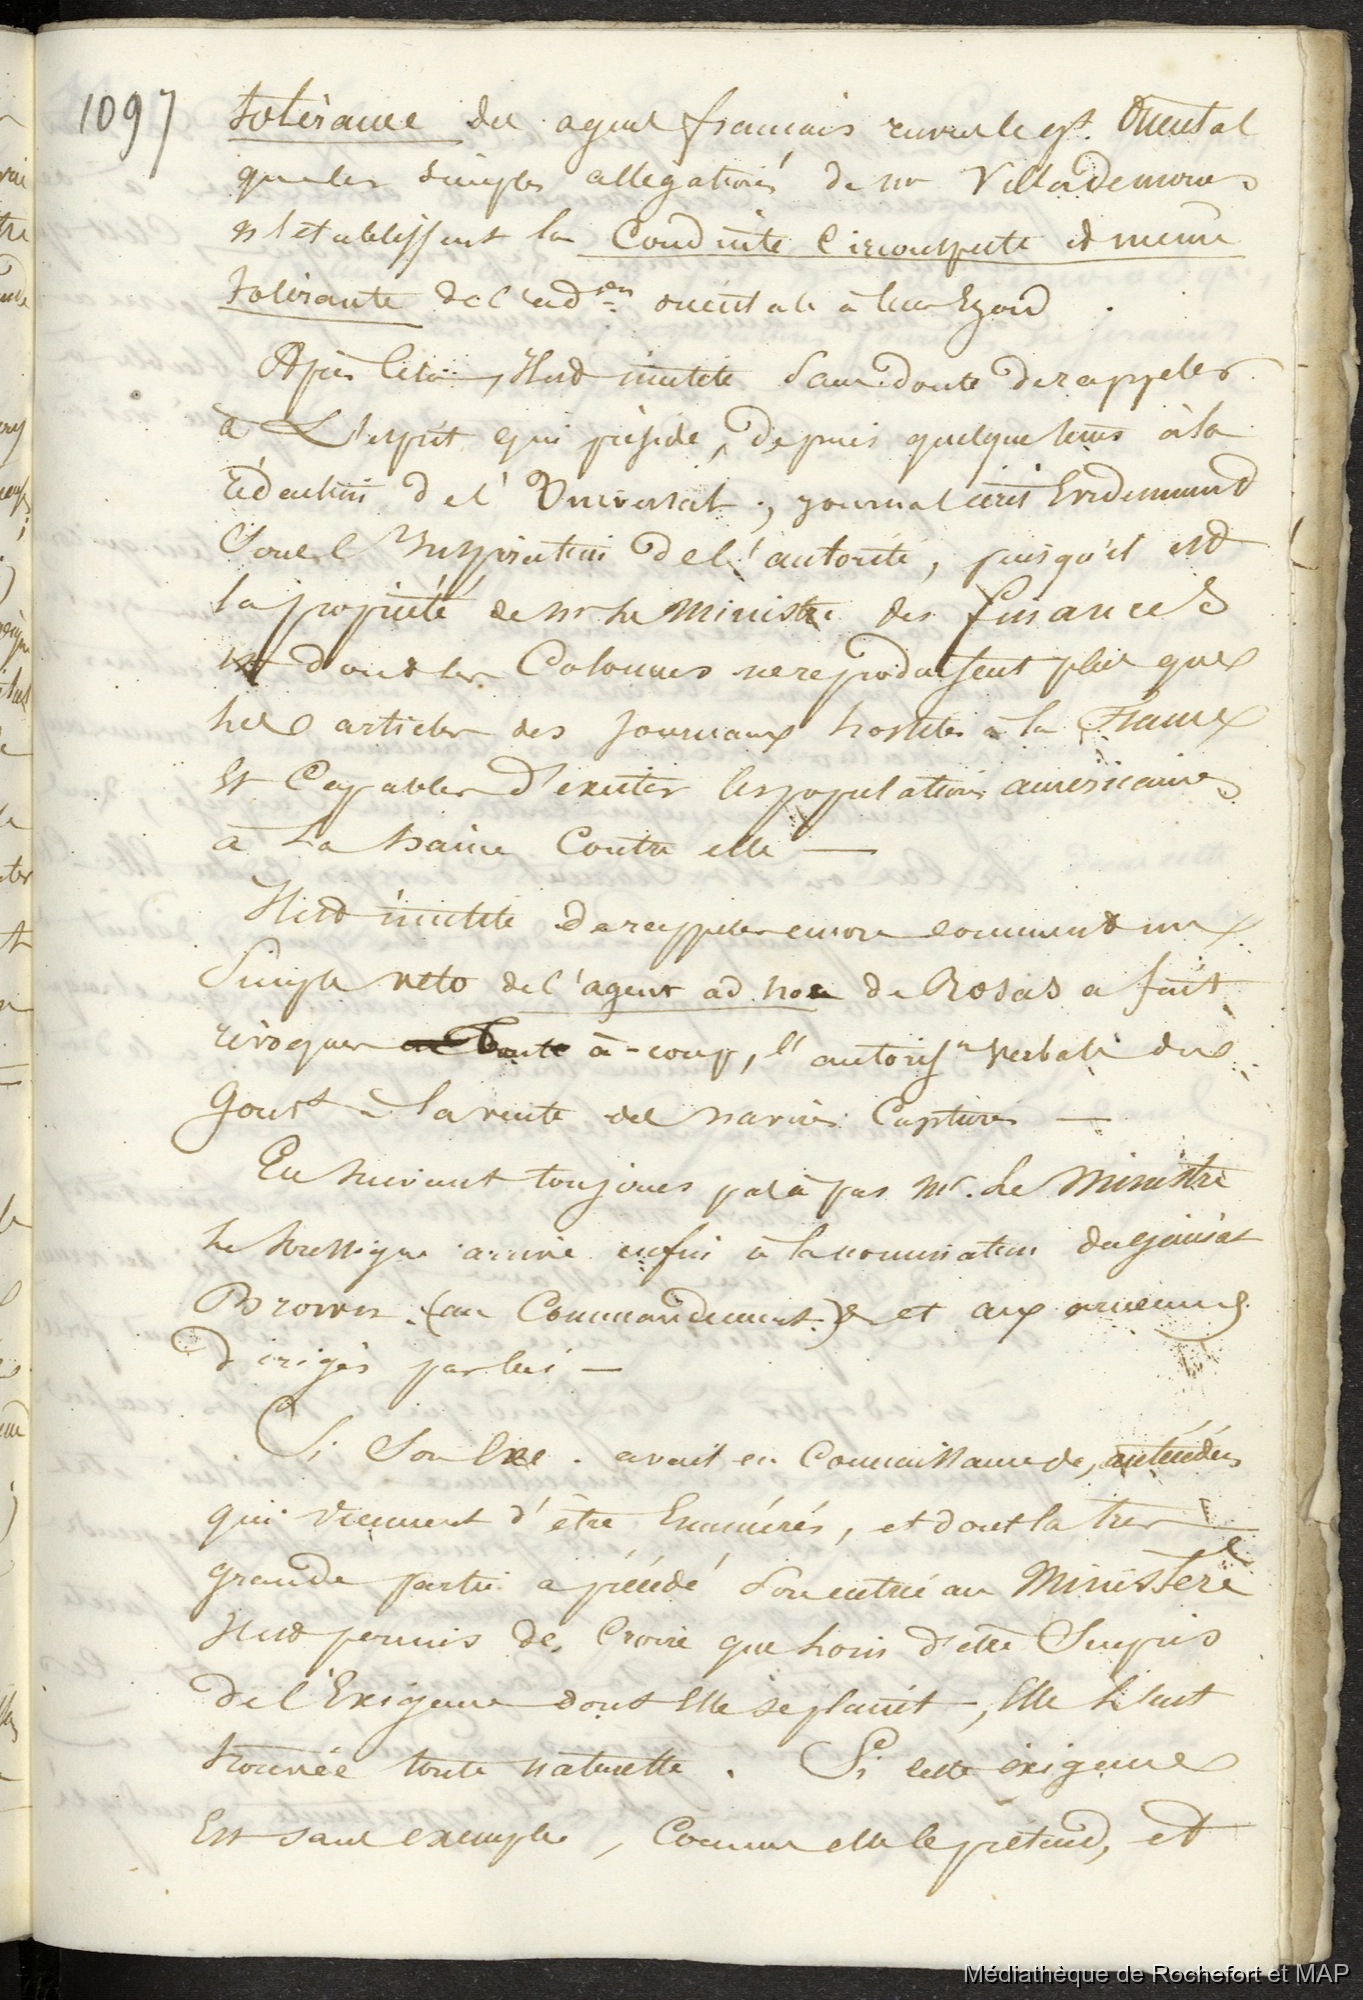 1097
tolérance des agens français envers le gt. Oriental
que les simples allégations de mr Villademoros
n'établissent la Conduite Circonspecte et même
tolérante de l'adon orientale à leur Egard.
Après Cela, Il est inutile Sans doute de rappeler
à L'esprit qui préside, depuis quelque tems à la
rédaction de l'Universal, journal écrit Evidemment
Sous l'Inspiration de l'autorité, puisqu'il est
la propriété de mr Le Ministre des finances
et dont les Colonnes ne reproduisent plus que
les articles des journaux hostiles à la France
Et Capables d'exciter les populations américaines
à La haine Contre elle —
Il est inutile de rappeler encore comment un
Simple veto de l'agent ad hoc de Rosas a fait
révoquer tout à-coup, l'autorisn verbale du
Gouvt à la vente des navires Capturés —
En Suivant toujours pas à pas Mr. Le Ministre
Le Soussigné arrive enfin à la nomination du général
Brown (au Commandement) et aux armemens
dirigés par lui —
Si Son Exe. avait eu Connaissance des antécédens
qui viennent d'être Enumérés, et dont la très
grande partie a précédé Son entrée au Ministère
Il est permis de Croire que loin d'être Surpris
de l'Exigence dont Elle se plaint, Elle L'eut
trouvée toute naturelle. Si cette éxigence
Est sans exemple, Comme elle le prétend, et
Médiathèque de Rochefort et MAP